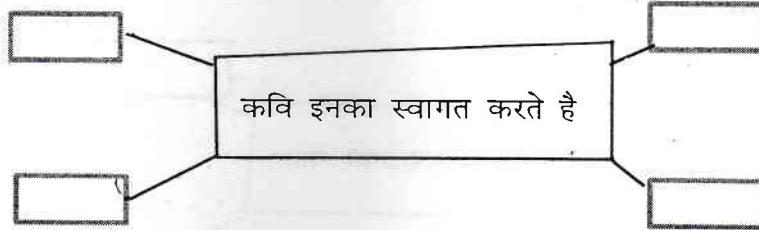 कवि इनका स्वागत करते है